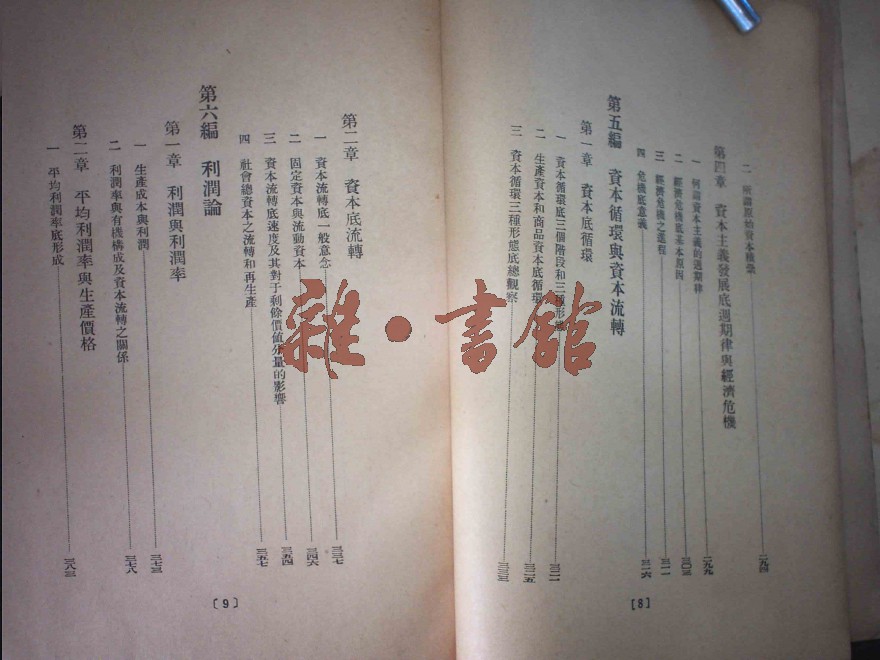 二 所謂原始資本積累 二九四
第四章 資本主義發展底週期律與經濟危機
一 何謂資本主義的週期律 二九九
二 經濟危機底基本原因 三〇三
三 經濟危機之進程 三一一
四 危機底意義 三一六
第五編 資本循環與資本流轉
第一章 資本底循環
一 資本循環底三個階段和三種形態 三二一
二 生產資本和商品資本底循環 三二五
三 資本循環三種形態底總觀察 三三三
〔8〕
第二章 資本底流轉
一 資本流轉底一般意念 三三七
二 固定資本與流動資本 三四六
三 資本流轉底速度及其對于利餘價值分量的影響 三五四
四 社會總資本之流轉和再生產 三五七
第六編 利潤論
第一章 利潤與利潤率
一 生產成本與利潤 三七三
二 利潤率與有機構成及資本流轉之關係 三七八
第二章 平均利潤率與生產價格
一 平均利潤率底形成 三八三
〔9〕
雜·書館